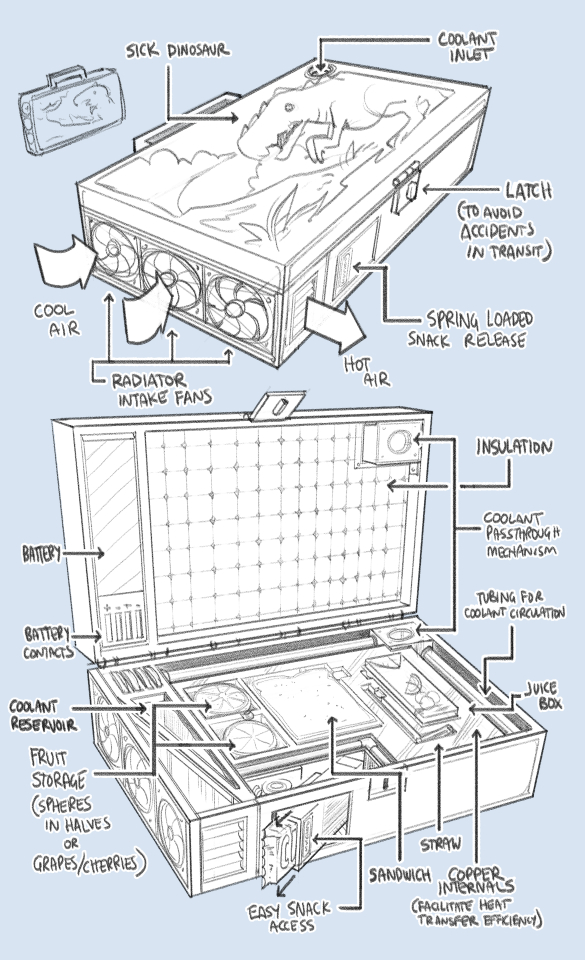 SICK DINOSAUR
COOLANT
INLET
LATCH
(TO AVOID
ACCIDENTS
IN TRANSIT)
COOL
AIR
SPRING LOADED
SNACK RELEASE
HOT
AIR
RADIATOR
INTAKE FANS
INSULATION
COOLANT
PASSTHROUGH
MECHANISM
BATTERY
TUBING FOR
COOLANT CIRCULATION
BATTERY
CONTACTS
JUICE
BOX
COOLANT
RESERVOIR
FRUIT
STORAGE
(SPHERES
IN HALVES
OR
GRAPES/CHERRIES)
STRAW
SANDWICH
COPPER
INTERNALS
(FACILITATE HEAT
TRANSFER EFFICIENCY)
EASY SNACK
ACCESS